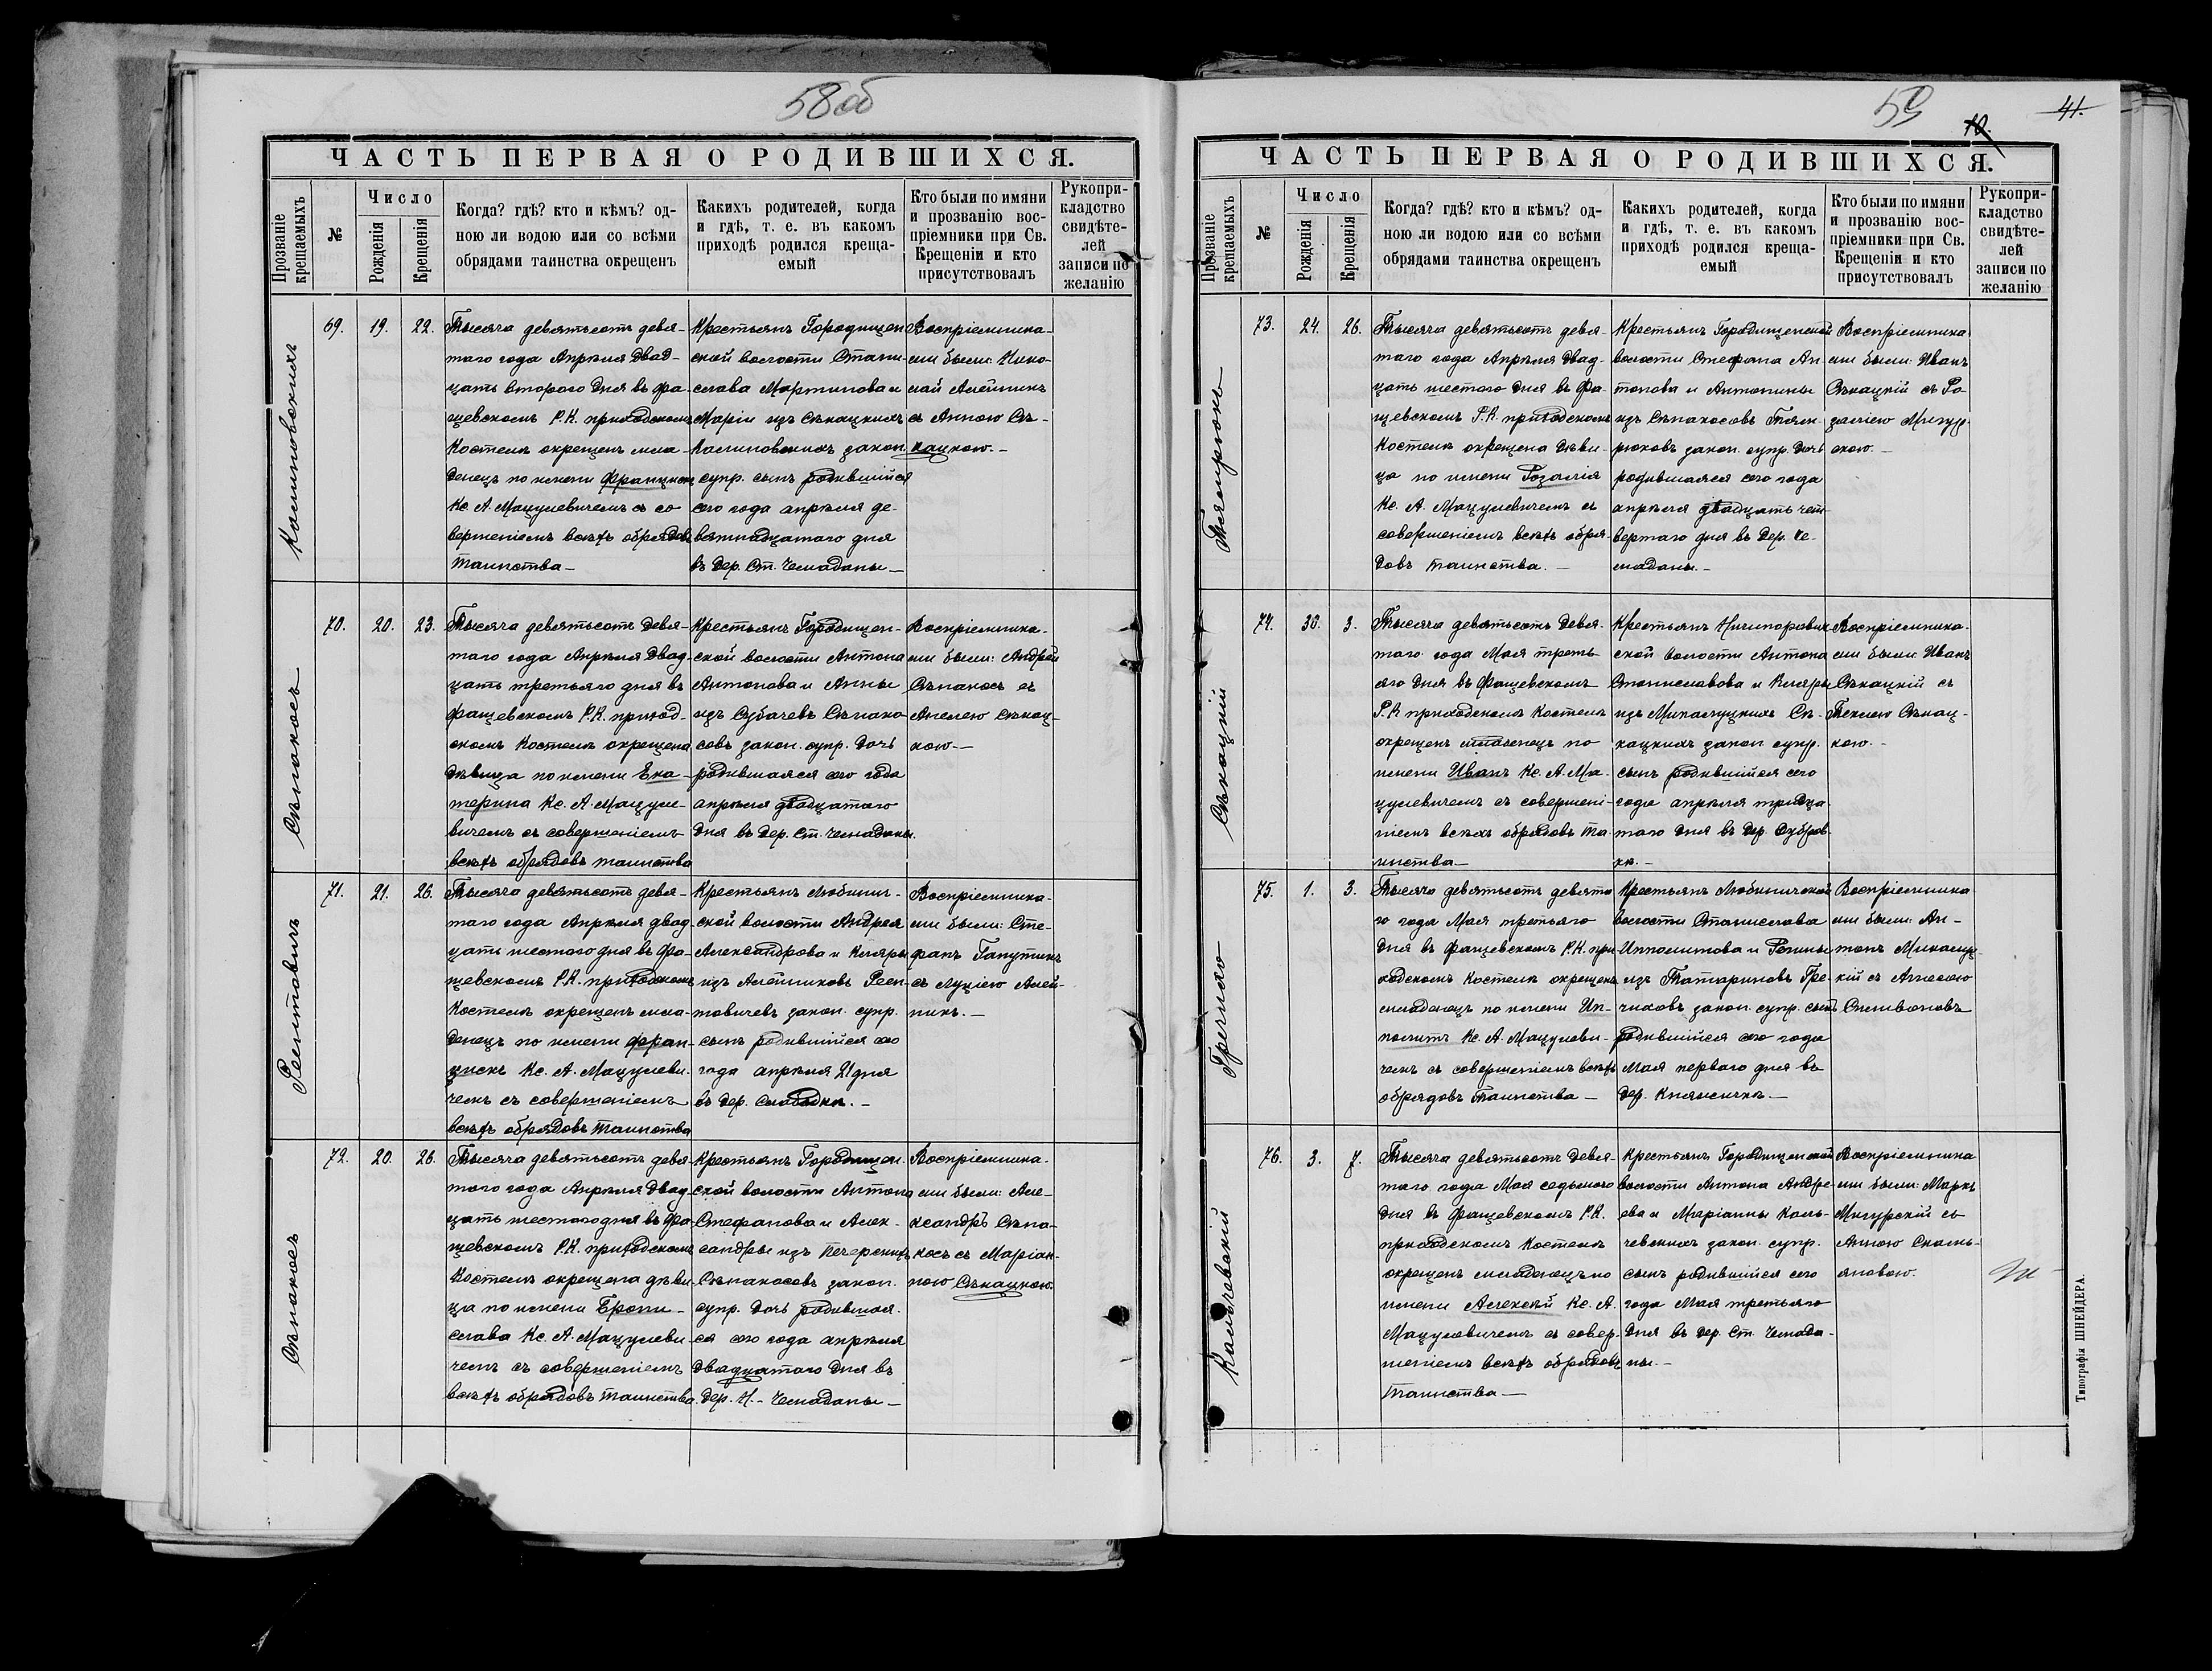 58об
ЧАСТЬ ПЕРВАЯ О РОДИВШИХСЯ.
Прозваніе крещаемыхъ
№
Число
Рожденія
Крещенія
Когда? гдѣ? кто и кѣмъ? од-
ною ли водою или со всѣми
обрядами таинства окрещенъ
Какихъ родителей, когда
и гдѣ, т. е. въ какомъ
приходѣ родился креща-
емый
Кто были по имяни
и прозванію вос-
пріемники при Св.
Крещеніи и кто
присутствовалъ
Рукопри-
кладство
свидѣте-
лей
записи по
желанію
69. 19. 22.
Тысяча девятьсотъ девя-
таго года Апрѣля двад-
цать второго дня въ Фа-
щевскомъ Р.К. приходскомъ
Костелѣ окрещенъ мла-
денецъ по имени Францискъ
Кс. А. Мацулевичемъ съ со
вершеніемъ всѣхъ обрядовъ
таинства
Крестьянъ Городищен
ской волости Стани-
слава Мартинова и
Маріи изъ Сѣкацкихъ
закон.
супр. сынъ родившійся
сего года апрѣля де-
вятнадцатаго дня
въ дер. Ст. Чемаданы
Воспріемника-
ми были: Нико-
лай Алейникъ
съ Анною Сѣ-
кацкою.
Сѣпакосъ
70. 20. 23.
Тысяча девятьсотъ девя-
таго года Апрѣля двад-
цать третьяго дня въ
Фащевскомъ Р.К. приход-
скомъ Костелѣ окрещена
дѣвица по имени Ека-
терина Кс. А. Мацуле-
вичемъ съ совершеніемъ
всѣхъ обрядовъ таинства
Крестьянъ Городищен-
ской волости Антона
Антонова и Анны
изъ Субачевъ Сѣпако-
совъ закон. супр. дочь
родившаяся сего года
апрѣля двадцатаго
дня въ дер. Ст. Чемаданы.
Воспріемника-
ми были: Андрей
Сѣпакосъ съ
Анелею Сѣкац-
кою
71. 21. 26.
Тысяча девятьсотъ девя-
таго года Апрѣля двад-
цать шестого дня въ Фа-
щевскомъ Р.К. приходскомъ
Костелѣ окрещенъ мла-
денецъ по имени Фран-
цискъ Кс. А. Мацулеви-
чемъ съ совершеніемъ
всѣхъ обрядовъ таинства
Крестьянъ Любинич-
ской волости Андрея
Александрова и Кляры
изъ Алейниковъ
закон. супр.
сынъ родившійся сего
года апрѣля 21 дня
въ дер. Слободка.
Воспріемника-
ми были: Сте-
фанъ
съ Луціею Алей-
никъ.
Сѣпакосъ
72. 20. 26.
Тысяча девятьсотъ девя-
таго года Апрѣля двад-
цать шестого дня въ Фа-
щевскомъ Р.К. приходскомъ
Костелѣ окрещена дѣви-
ца по имени Брони-
слава Кс. А. Мацулеви-
чемъ съ совершеніемъ
всѣхъ обрядовъ таинства.
Крестьянъ Городищен-
ской волости Антона
Стефанова и Алек-
сандры изъ
Сѣпакосовъ закон.
супр. дочь родившая-
ся сего года апрѣля
двадцатаго дня въ
дер. Н.- Чемаданы
Воспріемника-
ми были: Але-
ксандръ Сѣпа-
косъ съ Маріан-
ною Сѣкацкою.
59
10.
41.
ЧАСТЬ ПЕРВАЯ О РОДИВШИХСЯ.
Прозваніе крещаемыхъ
№
Число
Рожденія
Крещенія
Когда? гдѣ? кто и кѣмъ? од-
ною ли водою или со всѣми
обрядами таинства окрещенъ
Какихъ родителей, когда
и гдѣ, т. е. въ какомъ
приходѣ родился креща-
емый
Кто были по имяни
и прозванію вос-
пріемники при Св.
Крещеніи и кто
присутствовалъ
Рукопри-
кладство
свидѣте-
лей
записи по
желанію
73. 24. 26.
Тысяча девятьсотъ девя-
таго года Апрѣля двад-
цать шестого дня въ Фа-
щевскомъ Р.К. приходскомъ
Костелѣ окрещена дѣви-
ца по имени Розалія
Кс. А. Мацулевичемъ съ
совершеніемъ всѣхъ обря-
довъ таинства.
Крестьянъ Городищенской
волости Стефана Ан-
тонова и Антонины
изъ Сѣпакосовъ
закон. супр. дочь
родившаяся сего года
апрѣля двадцать чет-
вертаго дня въ дер. Че-
маданы.
Воспріемника
ми были: Иванъ
Сѣкацкій съ Ро-
заліею Мигур-
скою.
Сѣкацкій
74. 30. 3.
Тысяча девятьсотъ девя-
таго года Мая треть-
яго дня въ Фащевскомъ
Р.К. приходскомъ Костелѣ
окрещенъ младенецъ по
имени Иванъ Кс. А. Ма-
цулевичемъ съ совершені-
ніемъ всѣхъ обрядовъ та-
инства
Крестьянъ Ничипорович-
ской волости Антона
Станиславова и Кляры
изъ Микалуцкихъ Сѣ-
кацкихъ закон. супр.
сынъ родившійся сего
года апрѣля тридца-
таго дня въ дер. Дубров-
кѣ.
Воспріемника-
ми были: Иванъ
Сѣкацкій съ
Теклею Сѣкац-
кою.
Гречихо
75. 1. 3.
Тысяча девятьсотъ девята
го года Мая третьяго
дня въ Фащевскомъ Р.К. при-
ходскомъ Костелѣ окрещенъ
младенецъ по имени Ип-
политъ Кс. А. Мацулеви-
чемъ съ совершеніемъ всѣхъ
обрядовъ таинства
Крестьянъ Любиничской
волости Станислава
Ипполитова и Регины
изъ Татариновъ Гре-
чиховъ закон. супр. сынъ
родившійся сего года
Мая перваго дня въ
дер. Княжичкѣ.
Воспріемника
ми были: Ан-
тонъ Микалуц-
кій съ Агнесою
76. 3. 7.
Тысяча девятьсотъ девя-
таго года Мая седьмого
дня въ Фащевскомъ Р.К.
приходскомъ Костелѣ
окрещенъ младенецъ по
имени Алексѣй Кс. А.
Мацулевичемъ съ совер-
шеніемъ всѣхъ обрядовъ
таинства
Крестьянъ Городищенской
волости Антона Андре-
ева и Маріанны Каль-
чевскихъ закон. супр.
сынъ родившійся сего
года Мая третьяго
дня въ дер. Ст. Чемада-
ны.
Воспріемника
ми были: Маркъ
Мигурскій съ
Анною
Типографія ШНЕЙДЕРА.